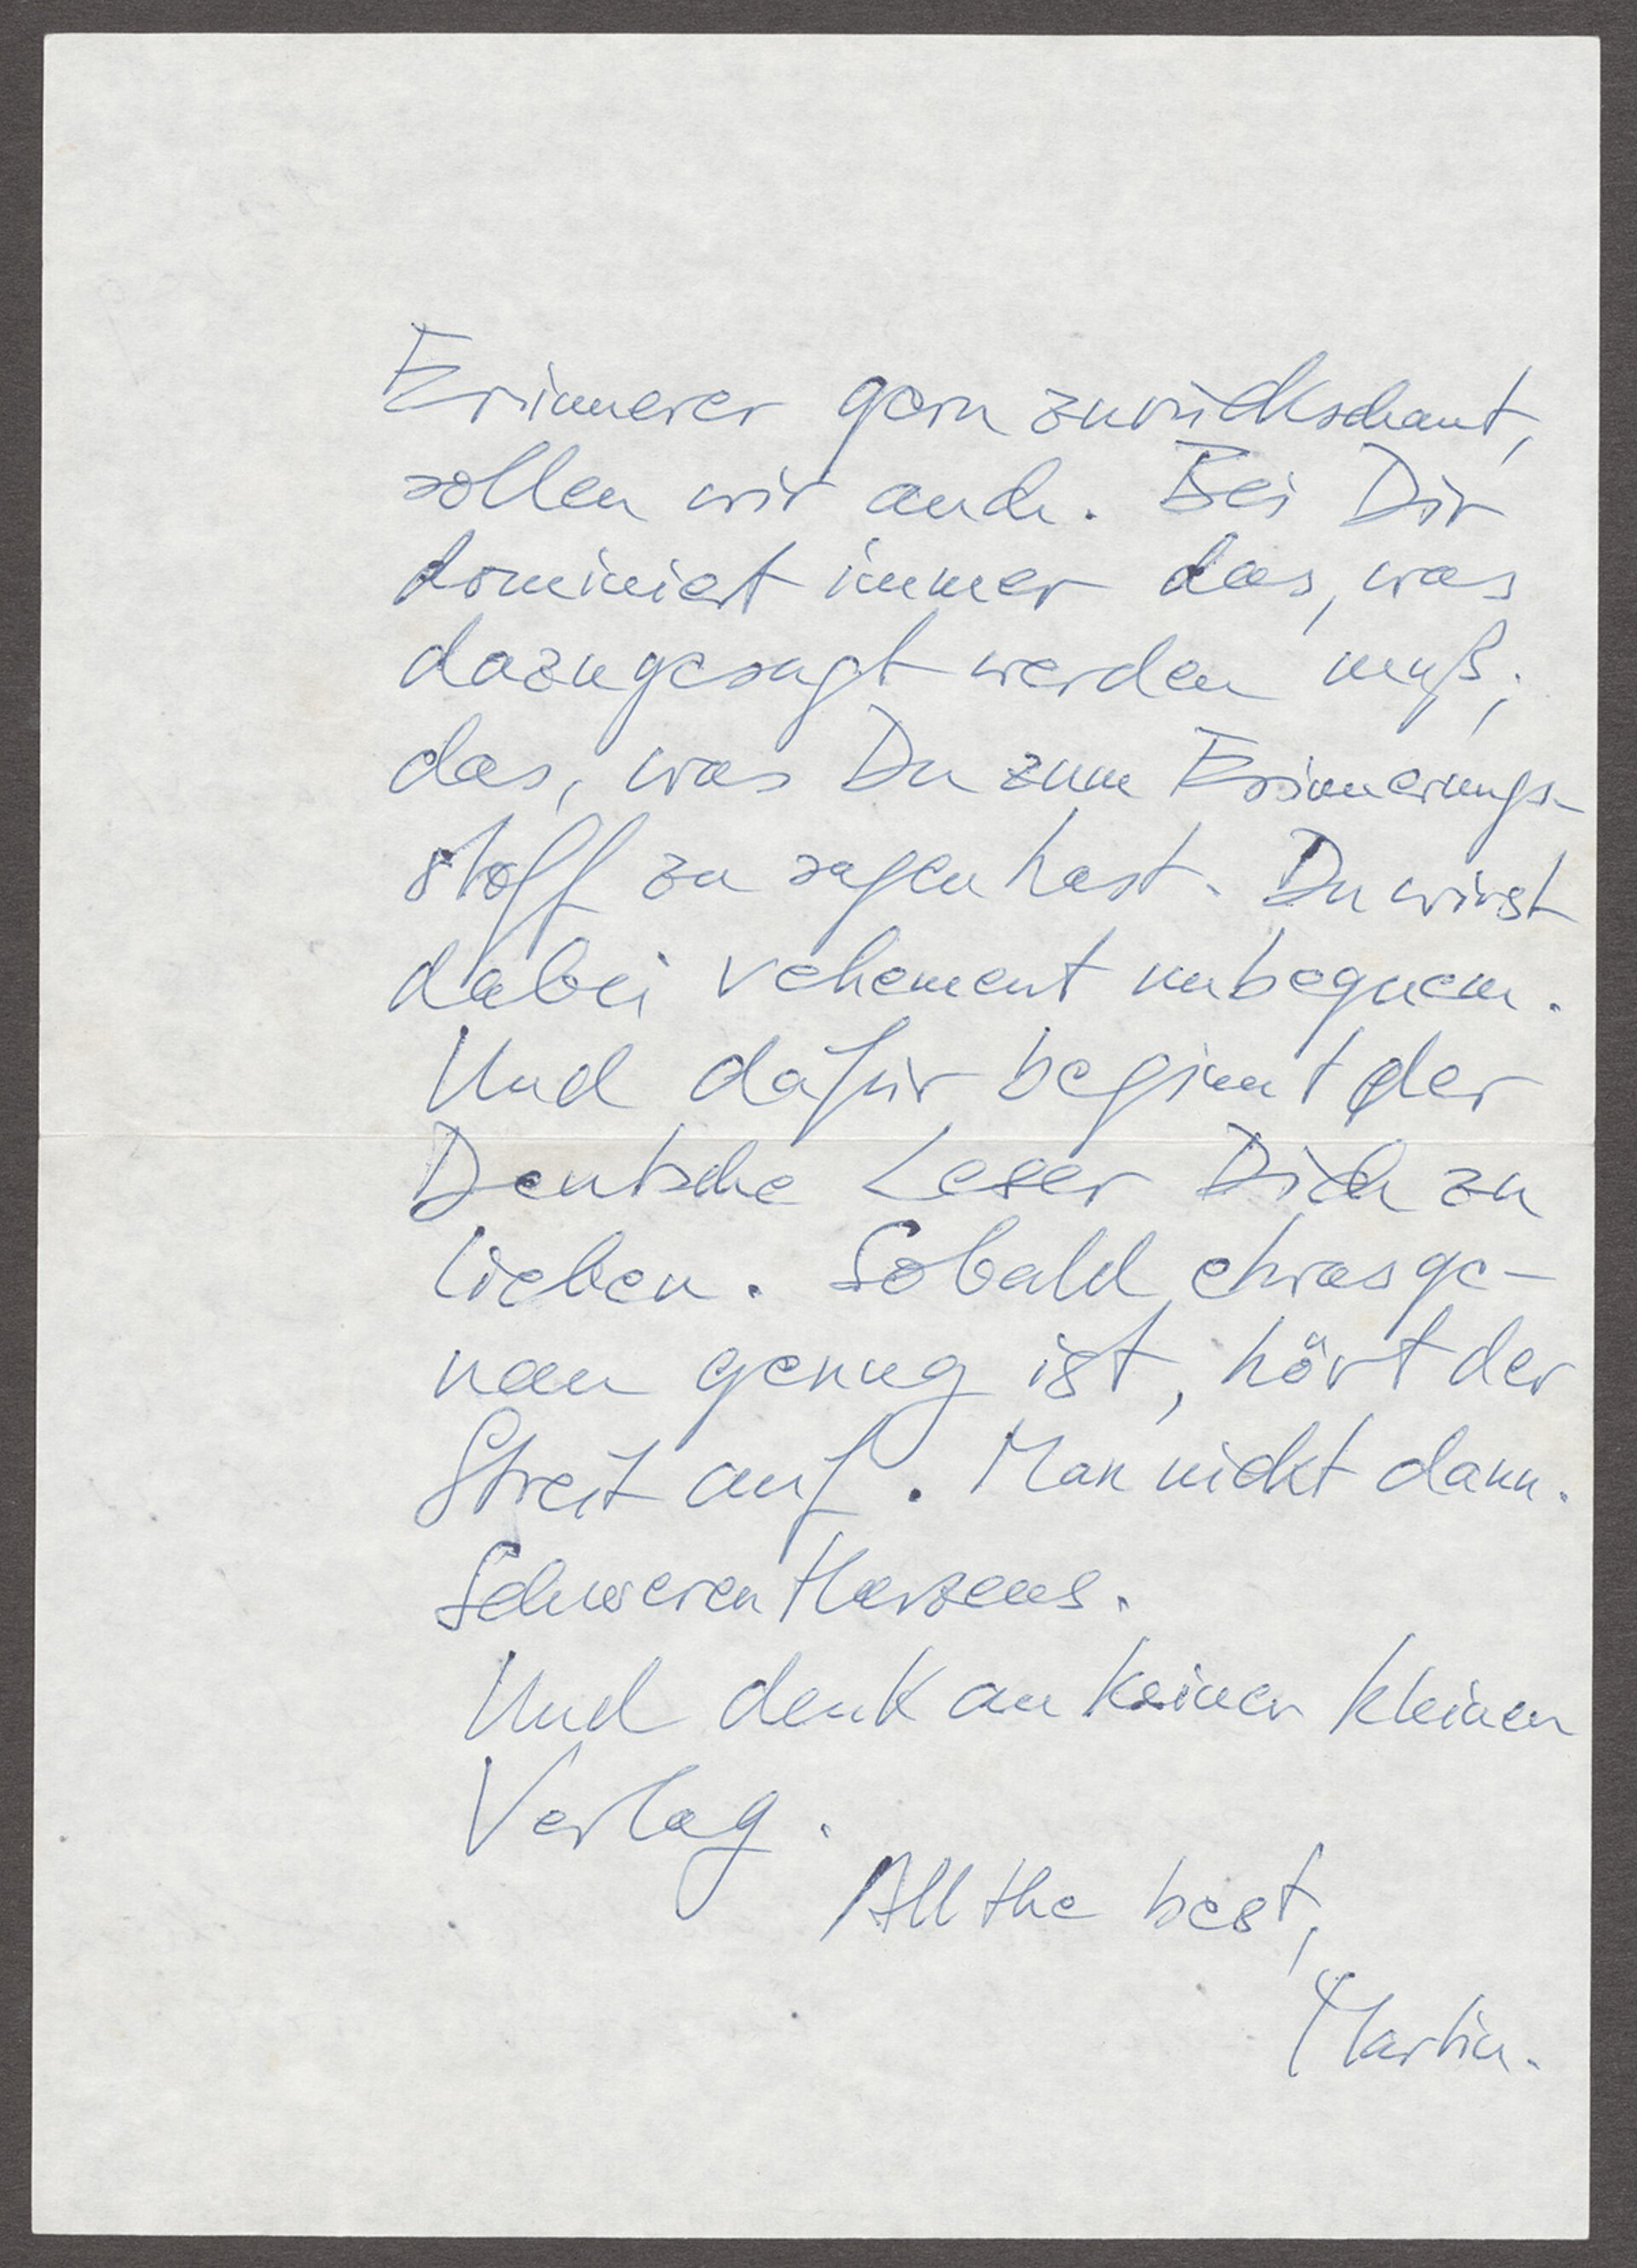 Erinnerer gern zurückschaut,
sollen wir auch. Bei Dir
dominiert immer das, was
dazugesagt werden muß;
das, was Du zum Erinnerungs-
stoff zu sagen hast. Du wirst
dabei vehement unbequem.
Und dafür beginnt der
Deutsche Leser Dich zu
lieben. Sobald etwas ge-
nau genug ist, hört der
Streit auf. Man nickt dann.
Schweren Herzens.
Und denk an keinen kleinen
Verlag.
All the best,
Martin.